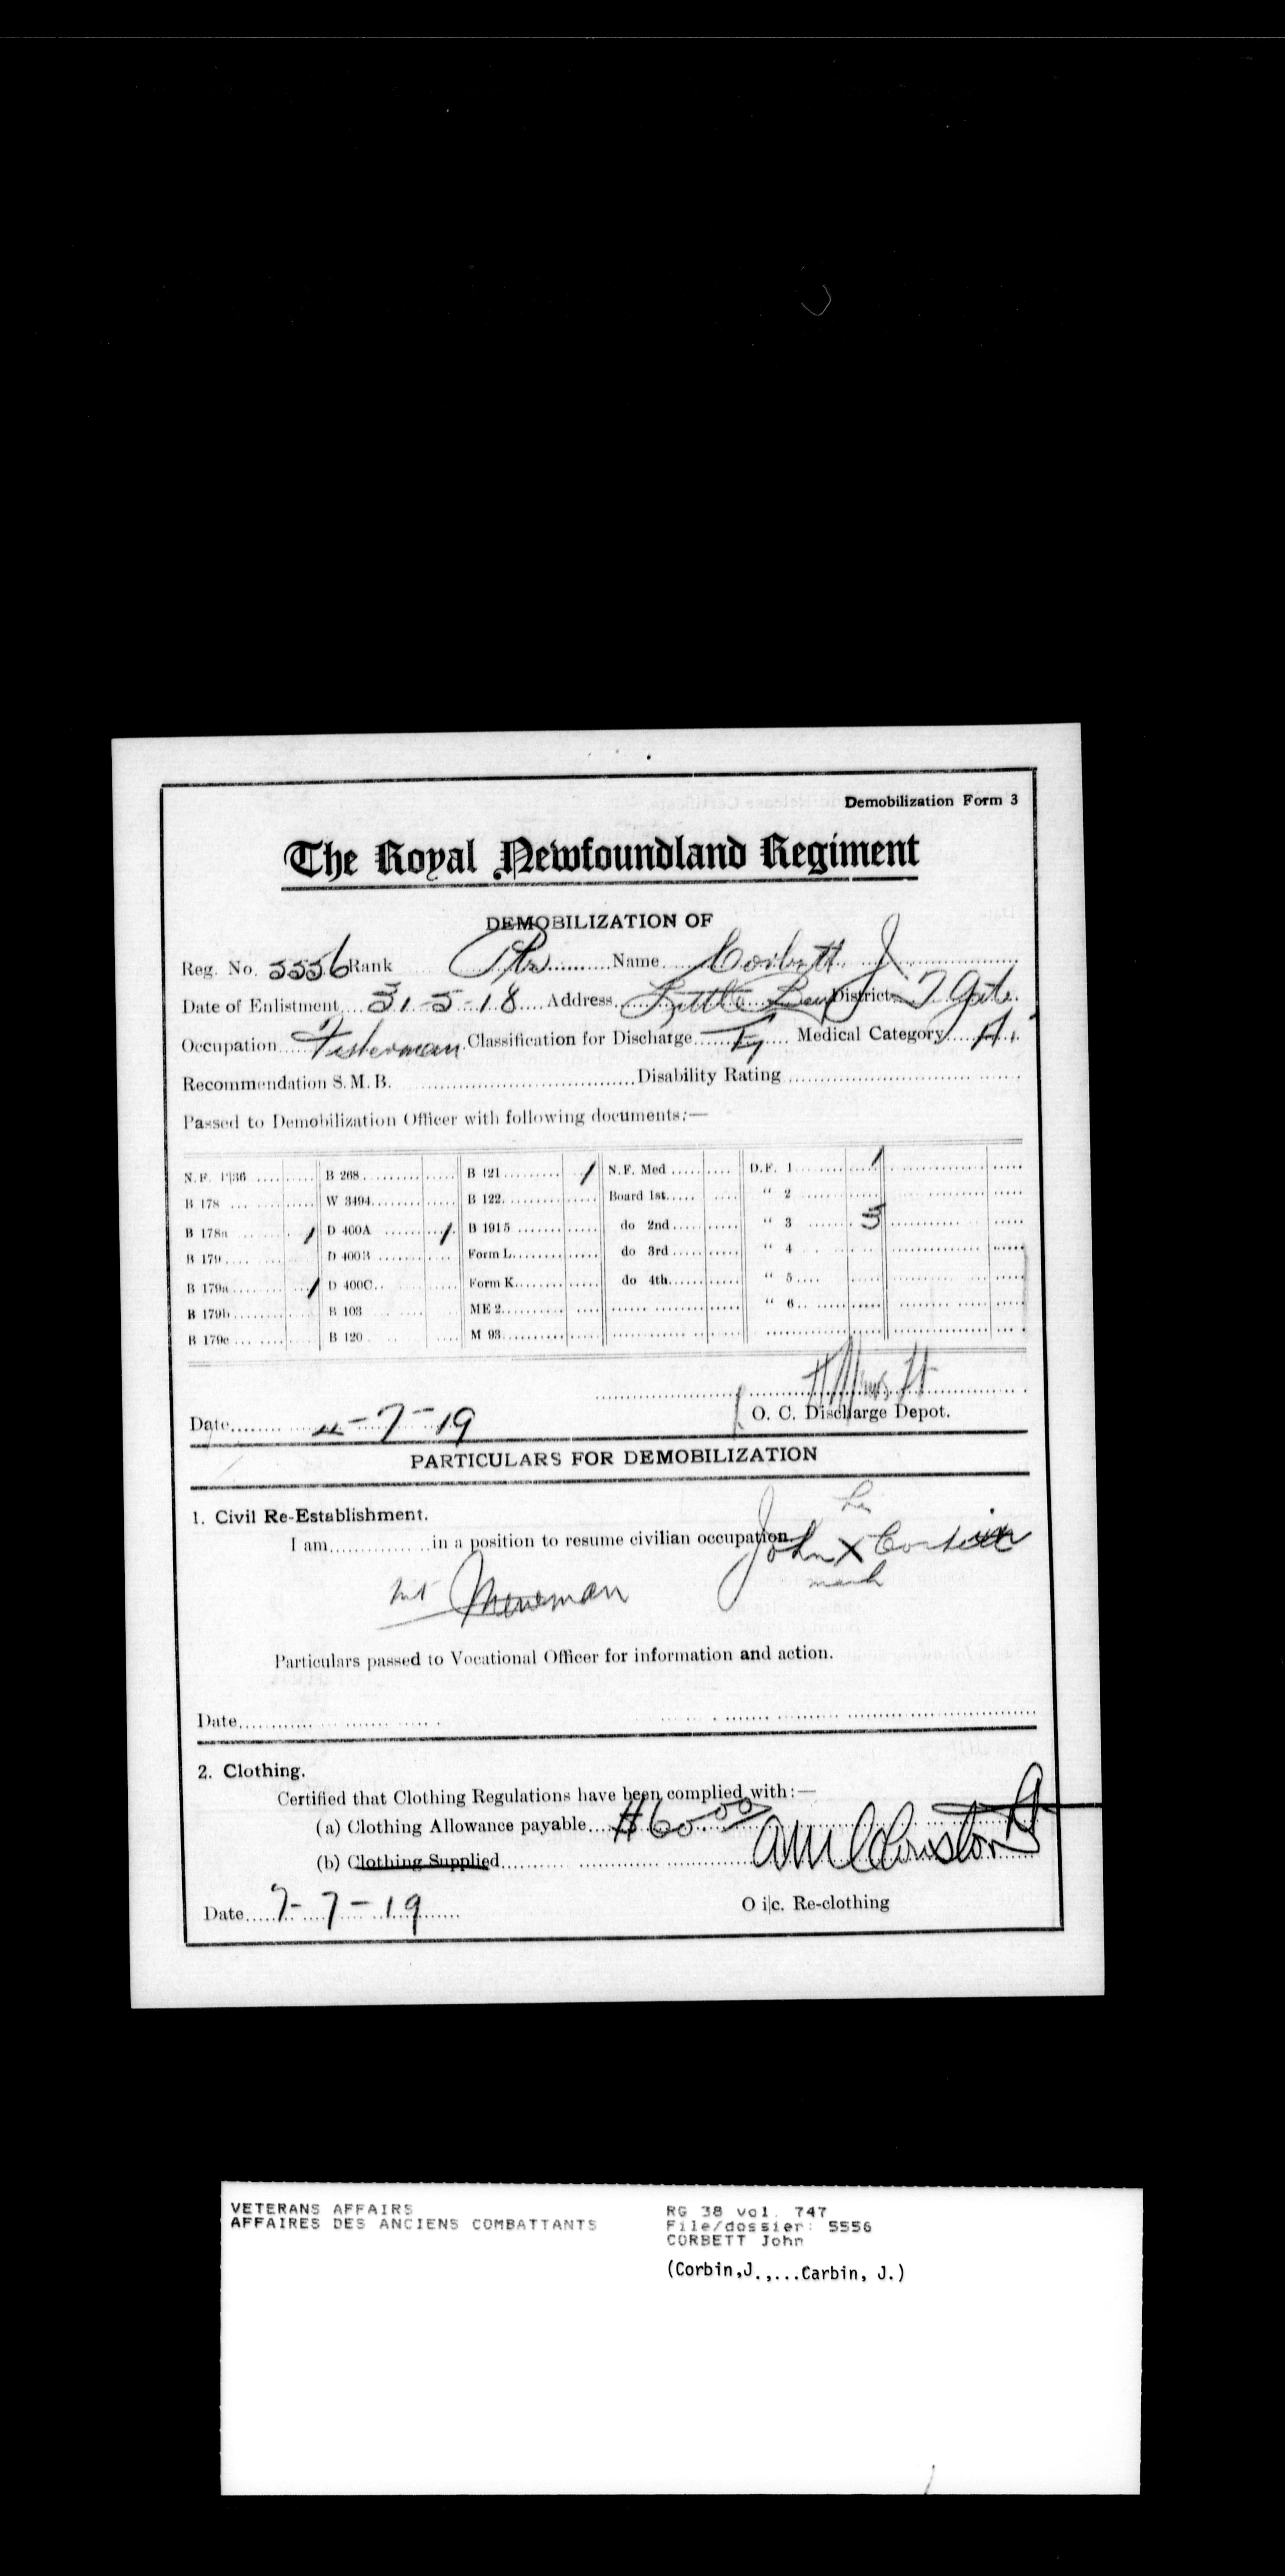 Demobilization Form 3
The Royal Newfoundland Regiment
DEMOBILIZATION OF
Reg. No. 5556 Rank Pte Name Corbett J
Date of Enlistment 31-5-18 Address Little Bay District
Occupation Fisherman Classification for Discharge Medical Category
Recommendation S. M. B. Disability Rating
Passed to Demobilization Officer with following documents:—
N.F. P|36 B 268 B 121 / N.F. Med D.F. 1 /
B 178 W 3494 B 122 Board 1st " 2
B 178a / D 400A / B 1915 do 2nd " 3 3
B 179 D 400B Form L do 3rd " 4
B 179a / D 400C Form K do 4th " 5
B 179b B 103 ME 2 " 6
B 179c B 120 M 93
Date -7-19 O. C. Discharge Depot.
PARTICULARS FOR DEMOBILIZATION
1. Civil Re-Establishment.
I am in a position to resume civilian occupation.
John X
mark
Particulars passed to Vocational Officer for information and action.
Date
2. Clothing.
Certified that Clothing Regulations have been complied with:—
(a) Clothing Allowance payable $60.00
(b) Clothing Supplied
Date 7-7-19 O i|c. Re-clothing
VETERANS AFFAIRS RG 38 vol. 747
AFFAIRES DES ANCIENS COMBATTANTS File/dossier: 5556
CORBETT John
(Corbin,J.,...Carbin, J.)